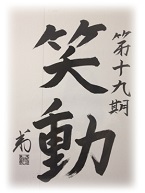 第十九期
笑動